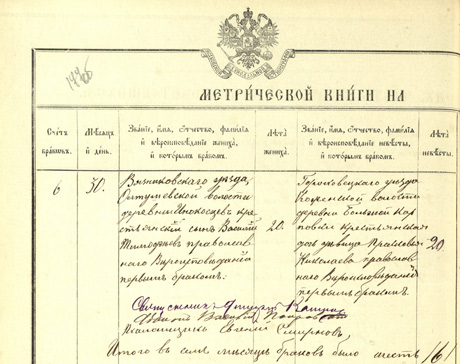 1446
МЕТРИЧЕСКОЙ КНИГИ НА
Счетъ браковъ.
Мѣсяцъ и день.
Званіе, имя, отчество, фамилія и вѣроисповѣданіе жениха, и которымъ бракомъ.
Лѣта жениха.
Званіе, имя, отчество, фамилія и вѣроисповѣданіе невѣсты, и которымъ бракомъ.
Лѣта невѣсты.
6
30.
Вязниковскаго уѣзда,
волости
деревни крес
тьянскій сынъ Василій
Тимофеевъ православ
наго Вѣроисповѣданія
первымъ бракомъ.
20.
Гороховецкаго уѣзда
волости
деревни Большой Кар
повки Крестьянская
дочь дѣвица Праскова
Николаева православ
наго Вѣроисповѣданія
первымъ бракомъ.
20
Священникъ
Псаломщикъ Евгений Смирновъ,
Итого въ семъ мѣсяцѣ браковъ было шесть (6)